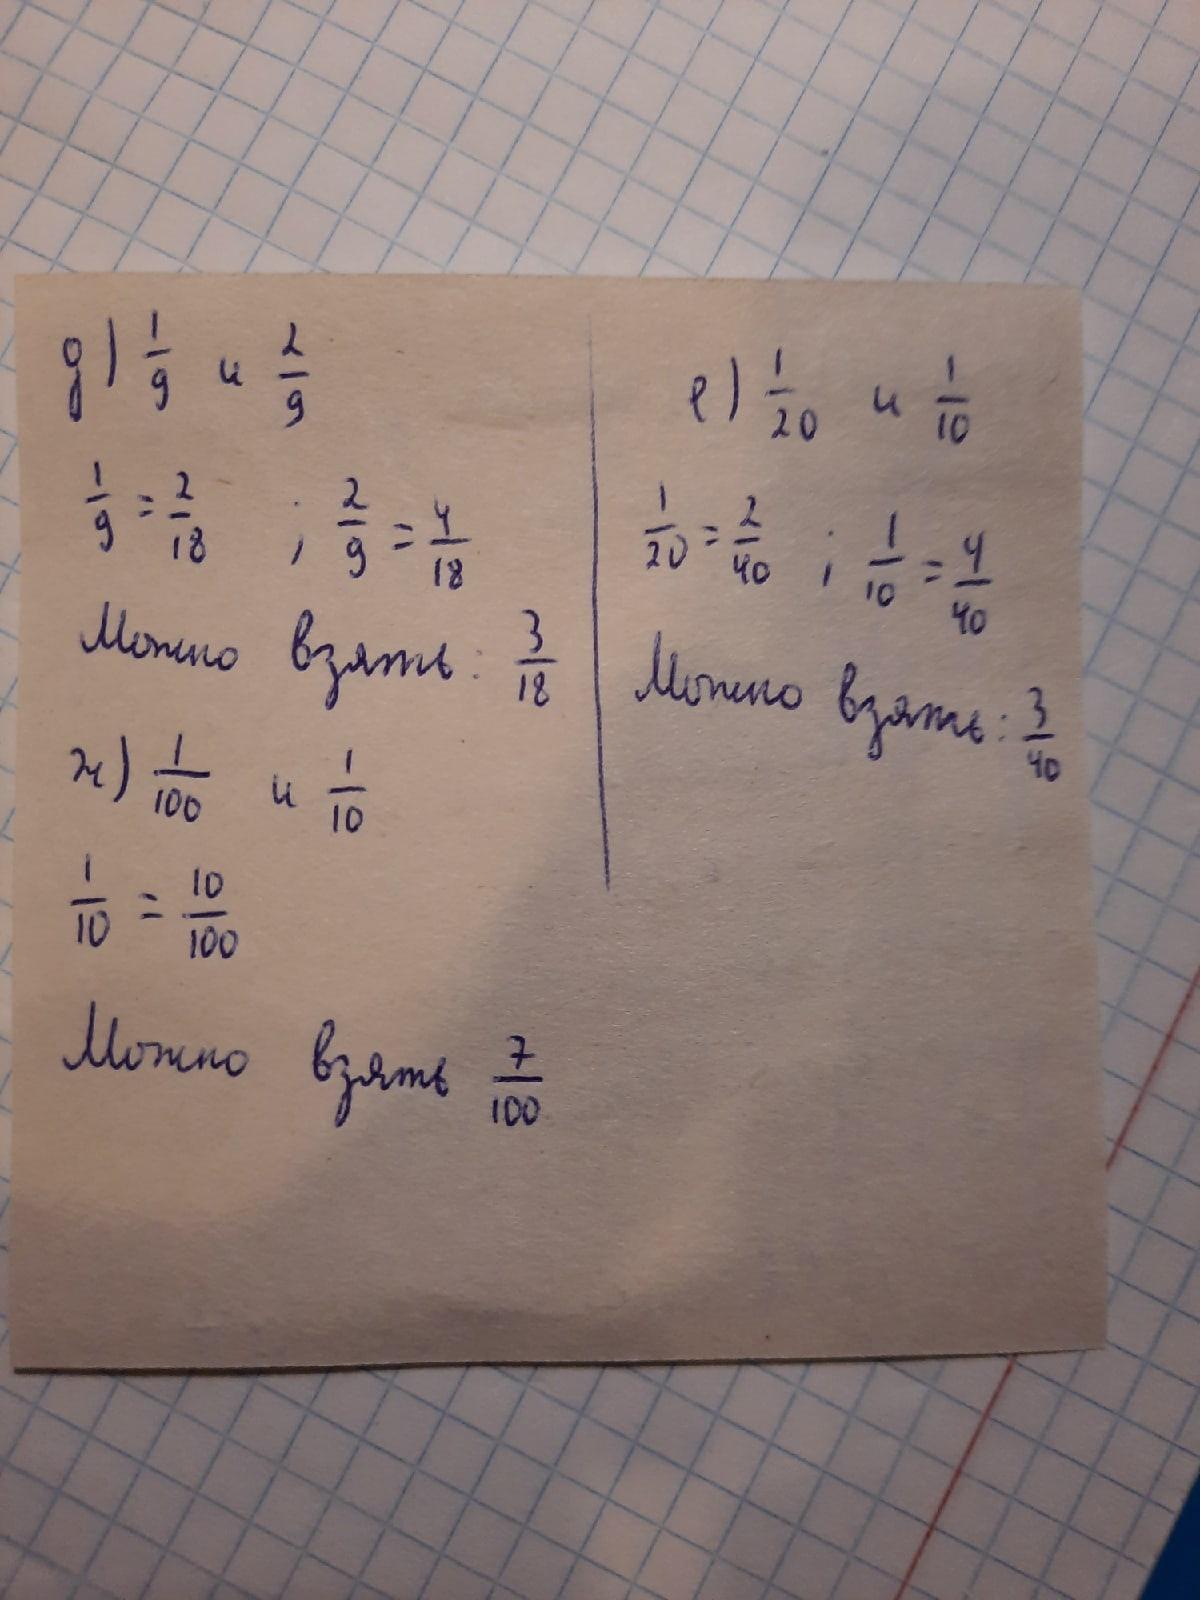 д) 1/9 и 2/9
1/9 = 2/18 ; 2/9 = 4/18
Можно взять: 3/18
ж) 1/100 и 1/10
1/10 = 10/100
Можно взять 7/100
е) 1/20 и 1/10
1/20 = 2/40 ; 1/10 = 4/40
Можно взять: 3/40